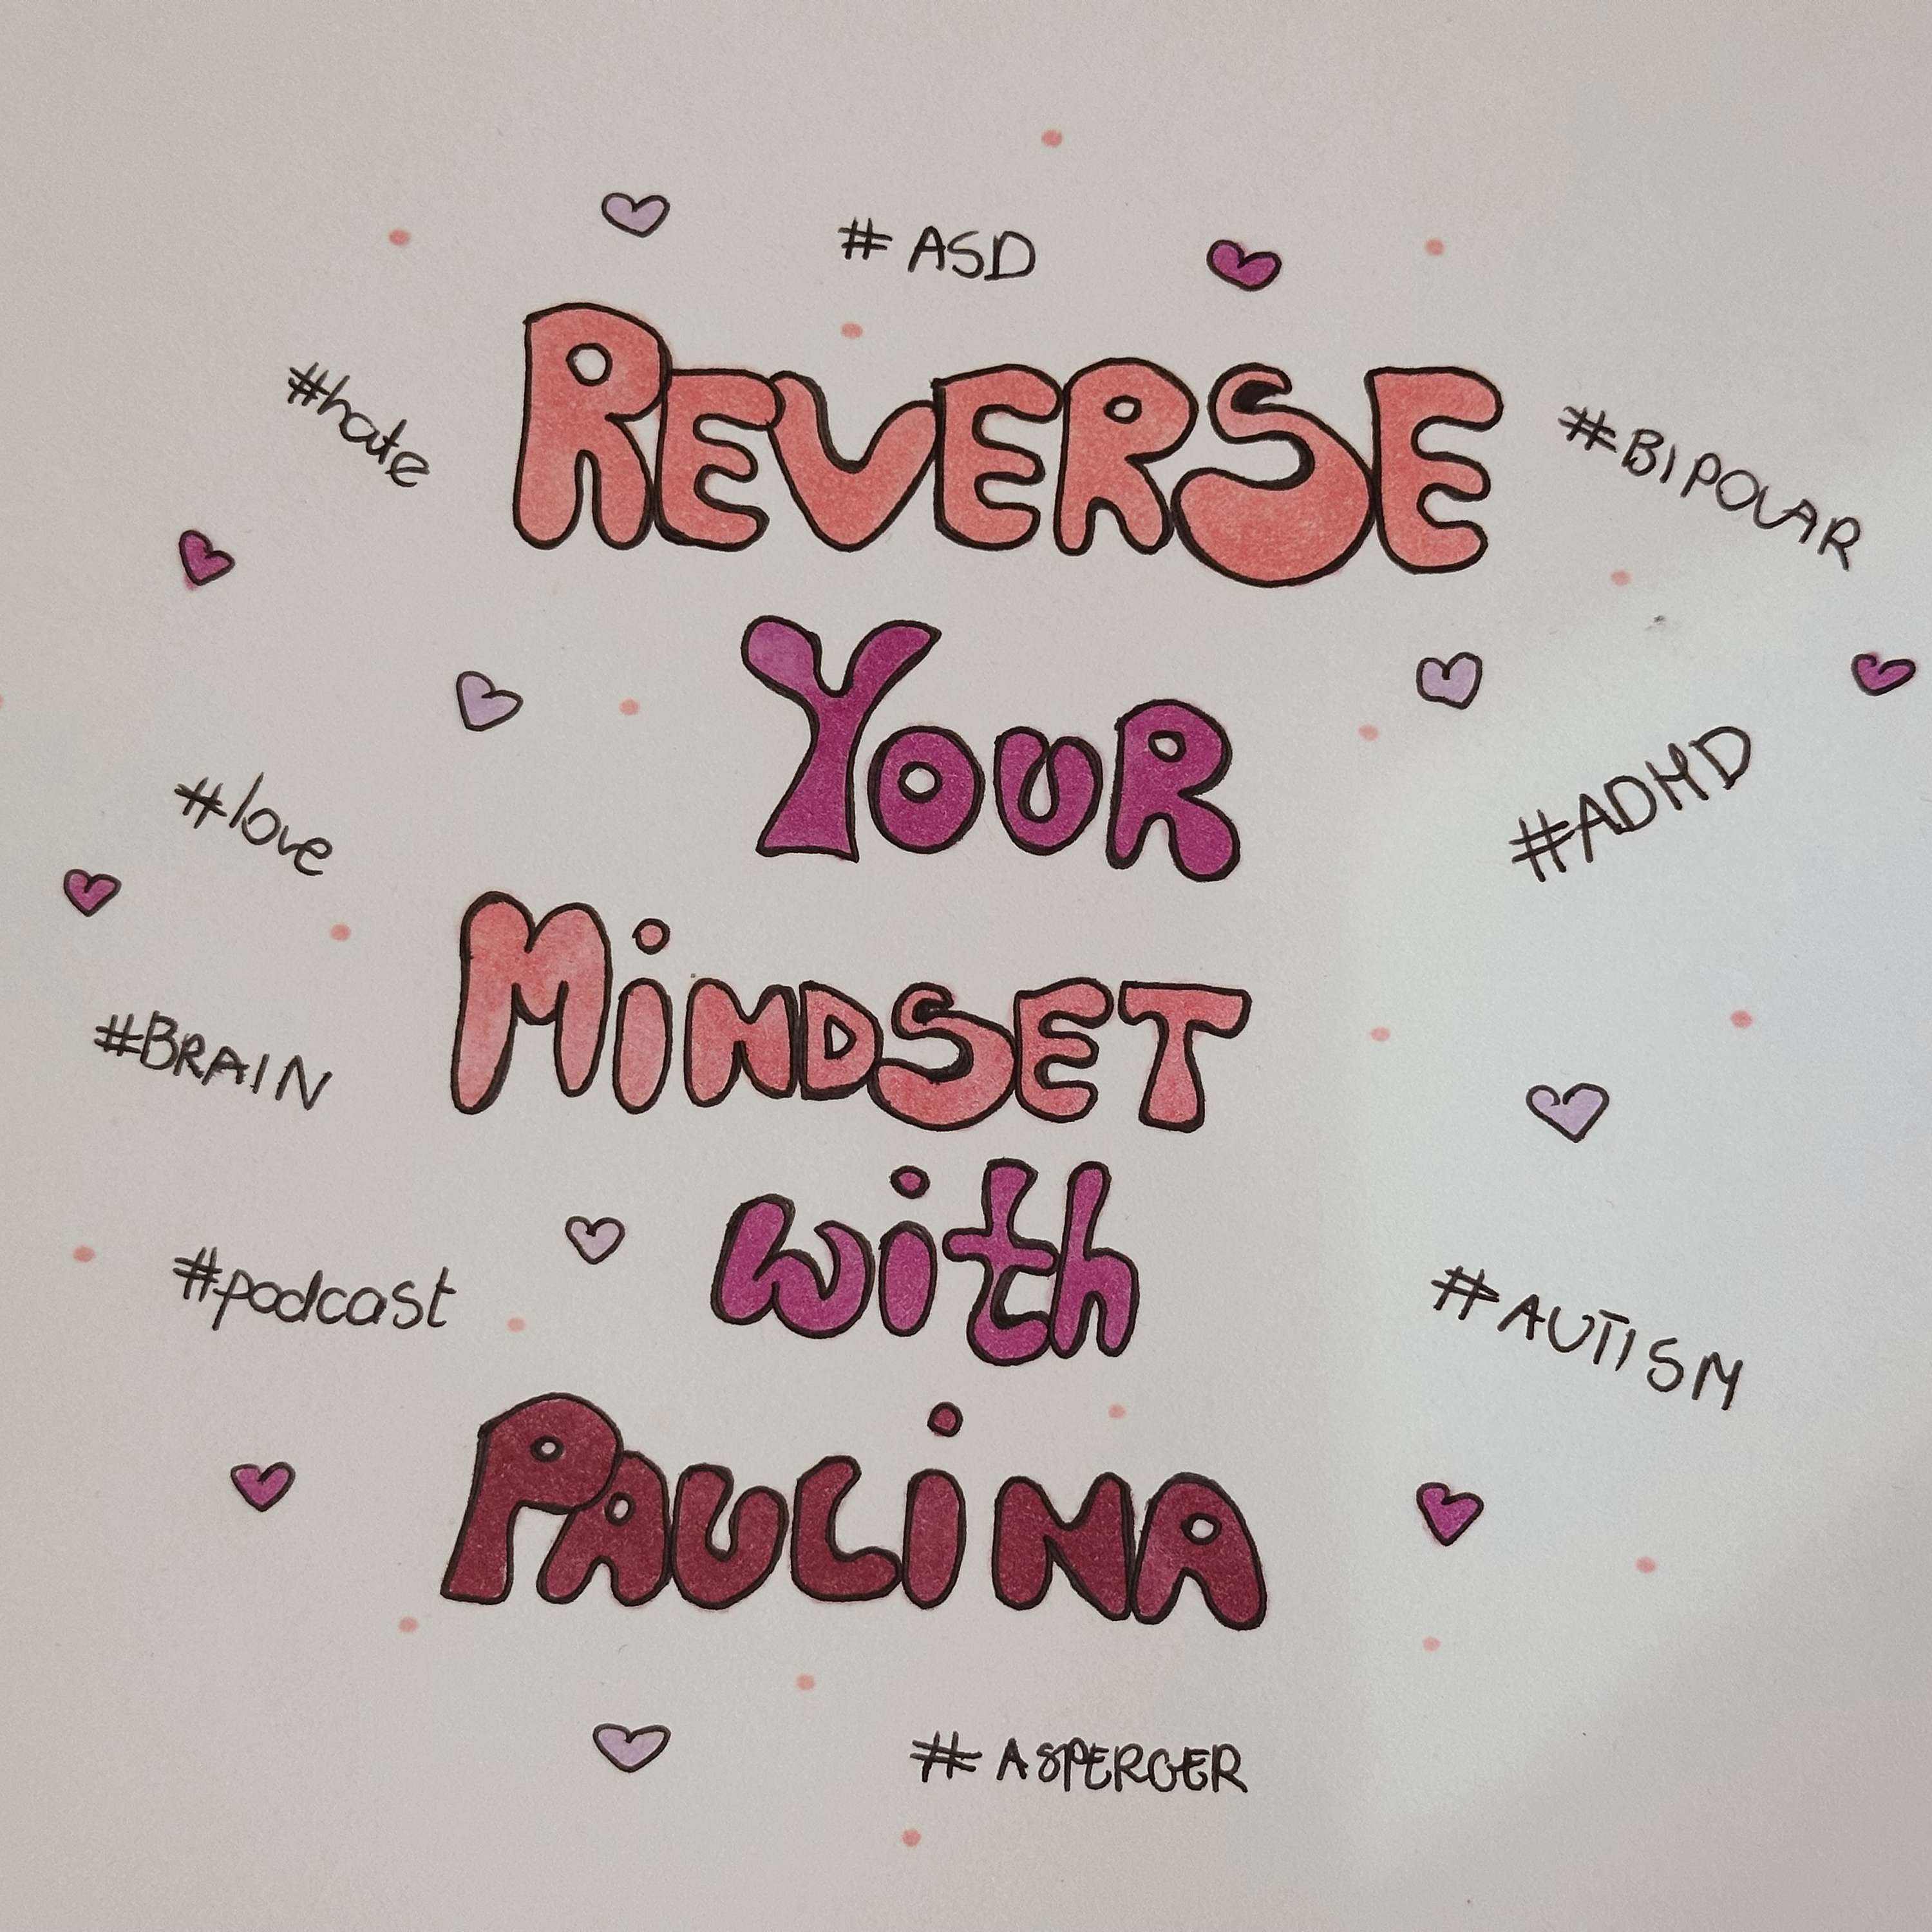 # ASD
#hate
REVERSE
#BIPOLAR
YOUR
#love
#ADHD
MiNDSET
#BRAIN
with
#podcast
#AUTISM
PAULiNA
# ASPERGER